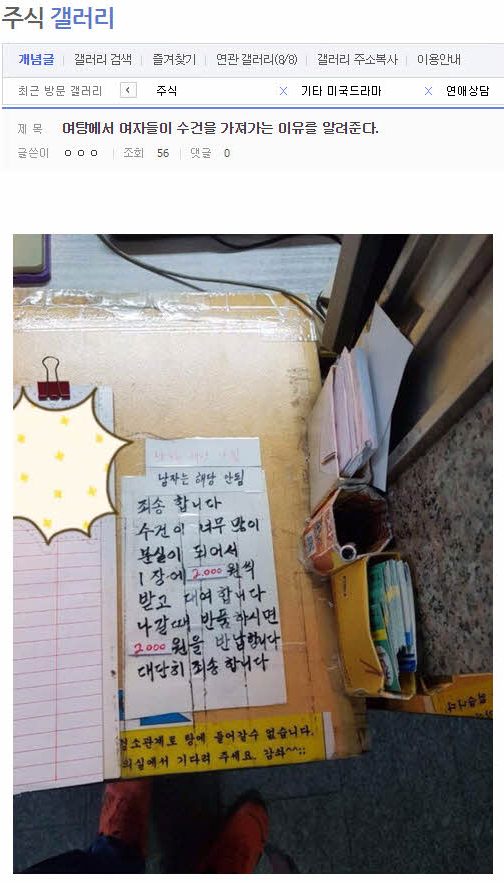 주식 갤러리
개념글 갤러리 검색 즐겨찾기 연관 갤러리(8/8) 갤러리 주소복사 이용안내
최근 방문 갤러리 < 주식 X 기타 미국드라마 X 연애상담
제 목 여탕에서 여자들이 수건을 가져가는 이유를 알려준다.
글쓴이 ㅇㅇㅇ 조회 56 댓글 0
남자는 해당 안됨
남자는 해당 안됨
죄송 합니다
수건이 너무 많이
분실이 되어서
1장에 2.000원씩
받고 대여합니다
나갈때 반품하시면
2000원을 반납합니다
대단히 죄송합니다
청소관계로 탕에 들어갈수 없습니다.
의실에서 기다려 주세요. 감솨^^;;